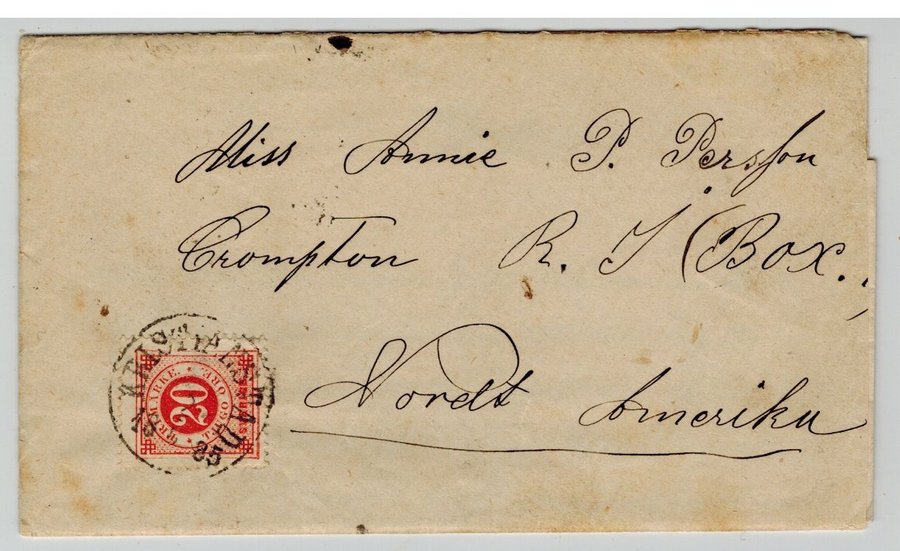 Miss Annie P. Persson
Crompton R. I (Box.,
Nordt Amerika
KRISTIANSTAD
85
20